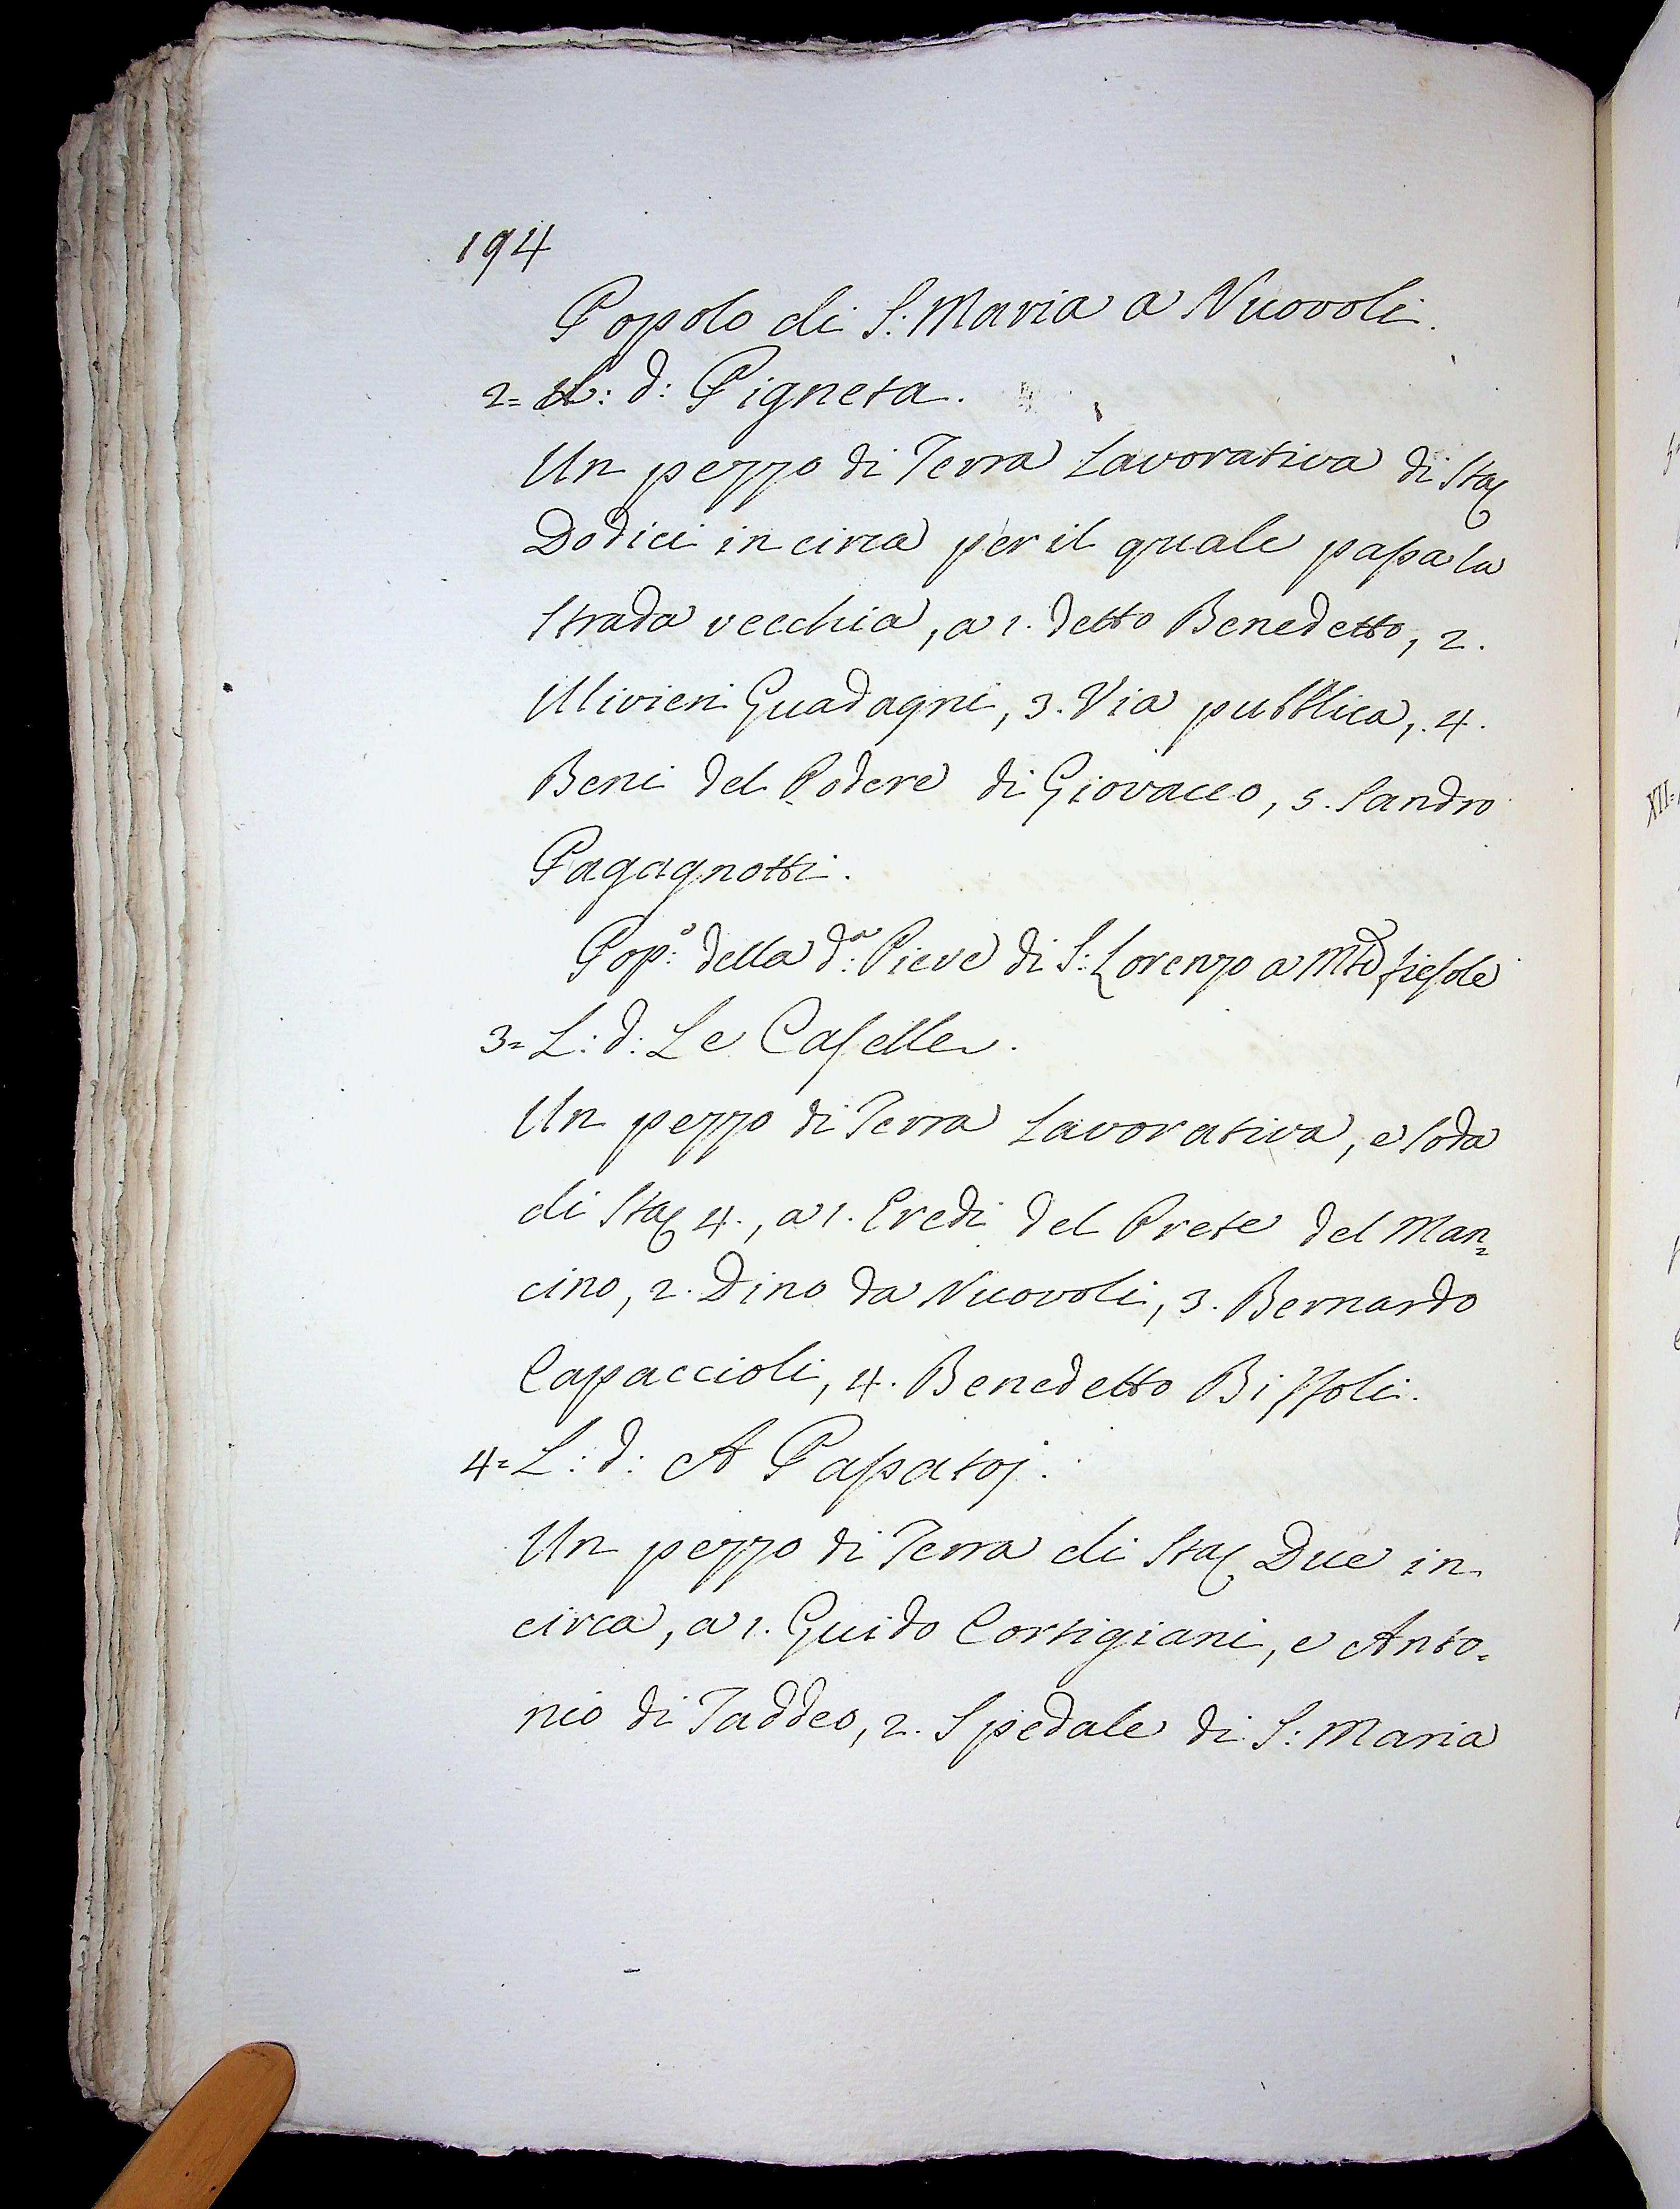 194
Popolo di S: Maria a Nuovoli.
2= L: d: Pigneta.
Un pezzo di Terra Lavorativa di Sta
Dodici in circa per il quale passa la
Strada vecchia, a 1. detto Benedetto, 2.
Ulivieri Guadagni, 3. Via pubblica, 4.
Beni del Podere di Giovacco, 5. Sandro
Pagagnotti.
Pop:o della d:a Pieve di S: Lorenzo a fiesole
3= L: d: Le Caselle.
Un pezzo di Terra Lavorativa, e soda
di Sta 4., a 1. Eredi del Prete del Man=
cino, 2. Dino da Nuovoli, 3. Bernardo
Capaccioli, 4. Benedetto Bizzoli.
4= L: d: A Passatoj.
Un pezzo di Terra di Sta Due in
circa, a 1. Guido Cortigiani, e Anto=
nio di Taddeo, 2. Spedale di S: Maria
XII=